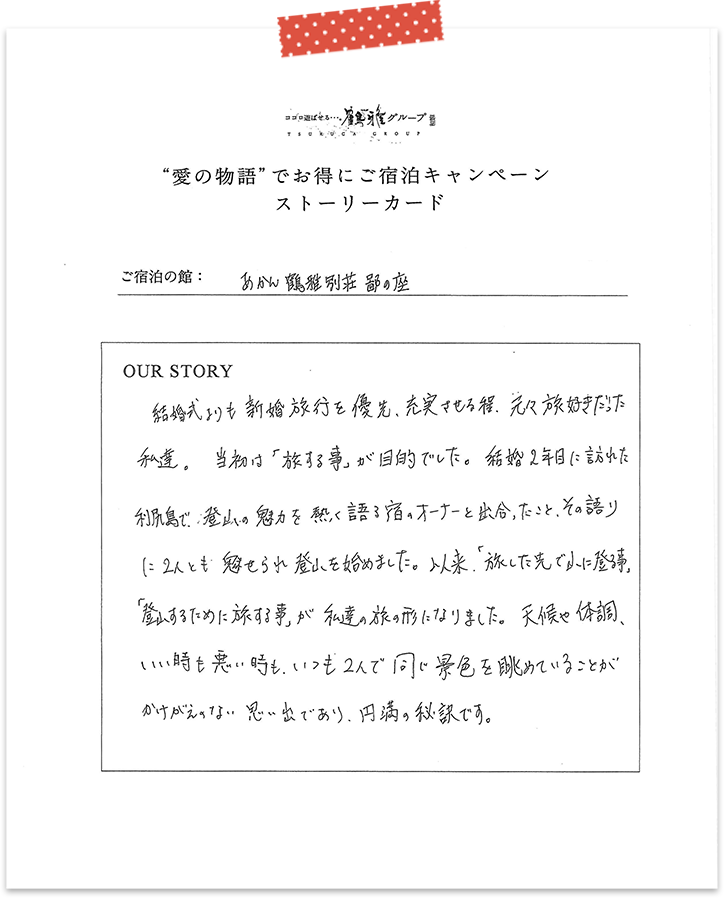 ココロ遊ばせる…。鶴雅グループ
TSURUGA GROUP
“愛の物語”でお得にご宿泊キャンペーン
ストーリーカード
ご宿泊の館： あかん鶴雅別荘 鄙の座
OUR STORY
結婚式よりも新婚旅行を優先、充実させる程、元々旅好きだった
私達。 当初は「旅する事」が目的でした。結婚2年目に訪れた
利尻島で、登山の魅力を熱く語る宿のオーナーと出合ったこと、その語り
に2人とも魅せられ登山を始めました。以来、「旅した先で山に登る事」
「登山するために旅する事」が私達の旅の形になりました。天候や体調、
いい時も悪い時も、いつも2人で同じ景色を眺めていることが
かけがえのない思い出であり、円満の秘訣です。